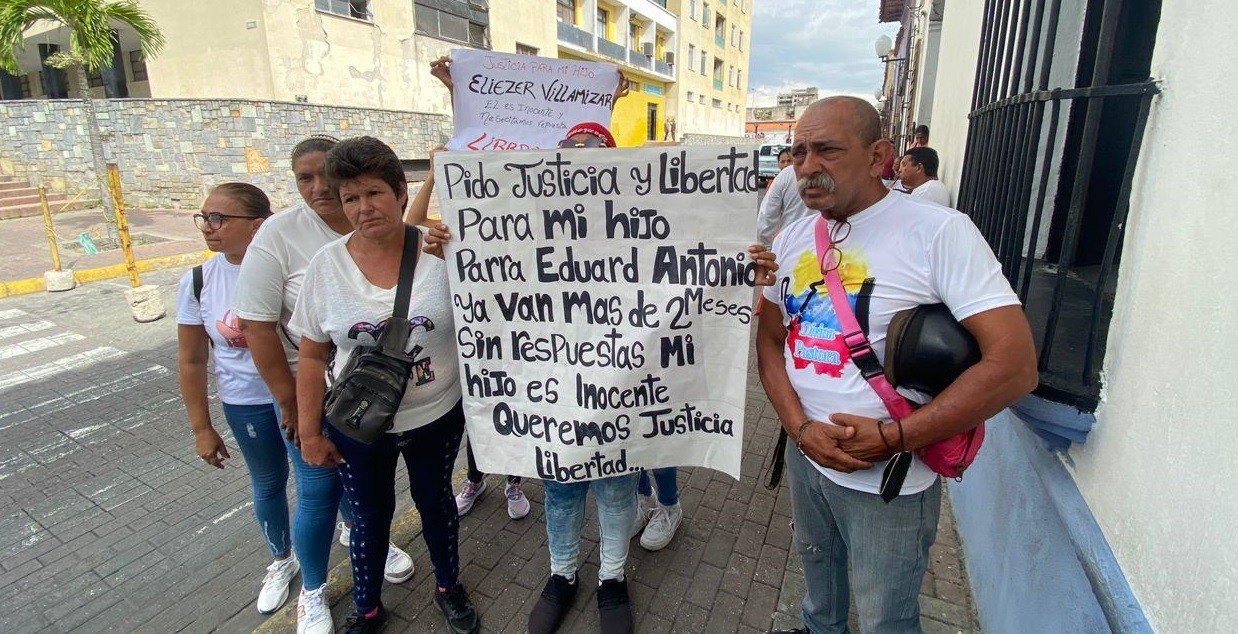 Justicia Para mi Hijo
Eliezer Villamizar
El es Inocente y
Nesecitamos repuesta
Pido Justicia y Libertad
Para mi hijo
Parra Eduard Antonio
ya van mas de 2 Meses
Sin resPuestas Mi
hiJo es Inocente
Queremos Justicia
libertad...